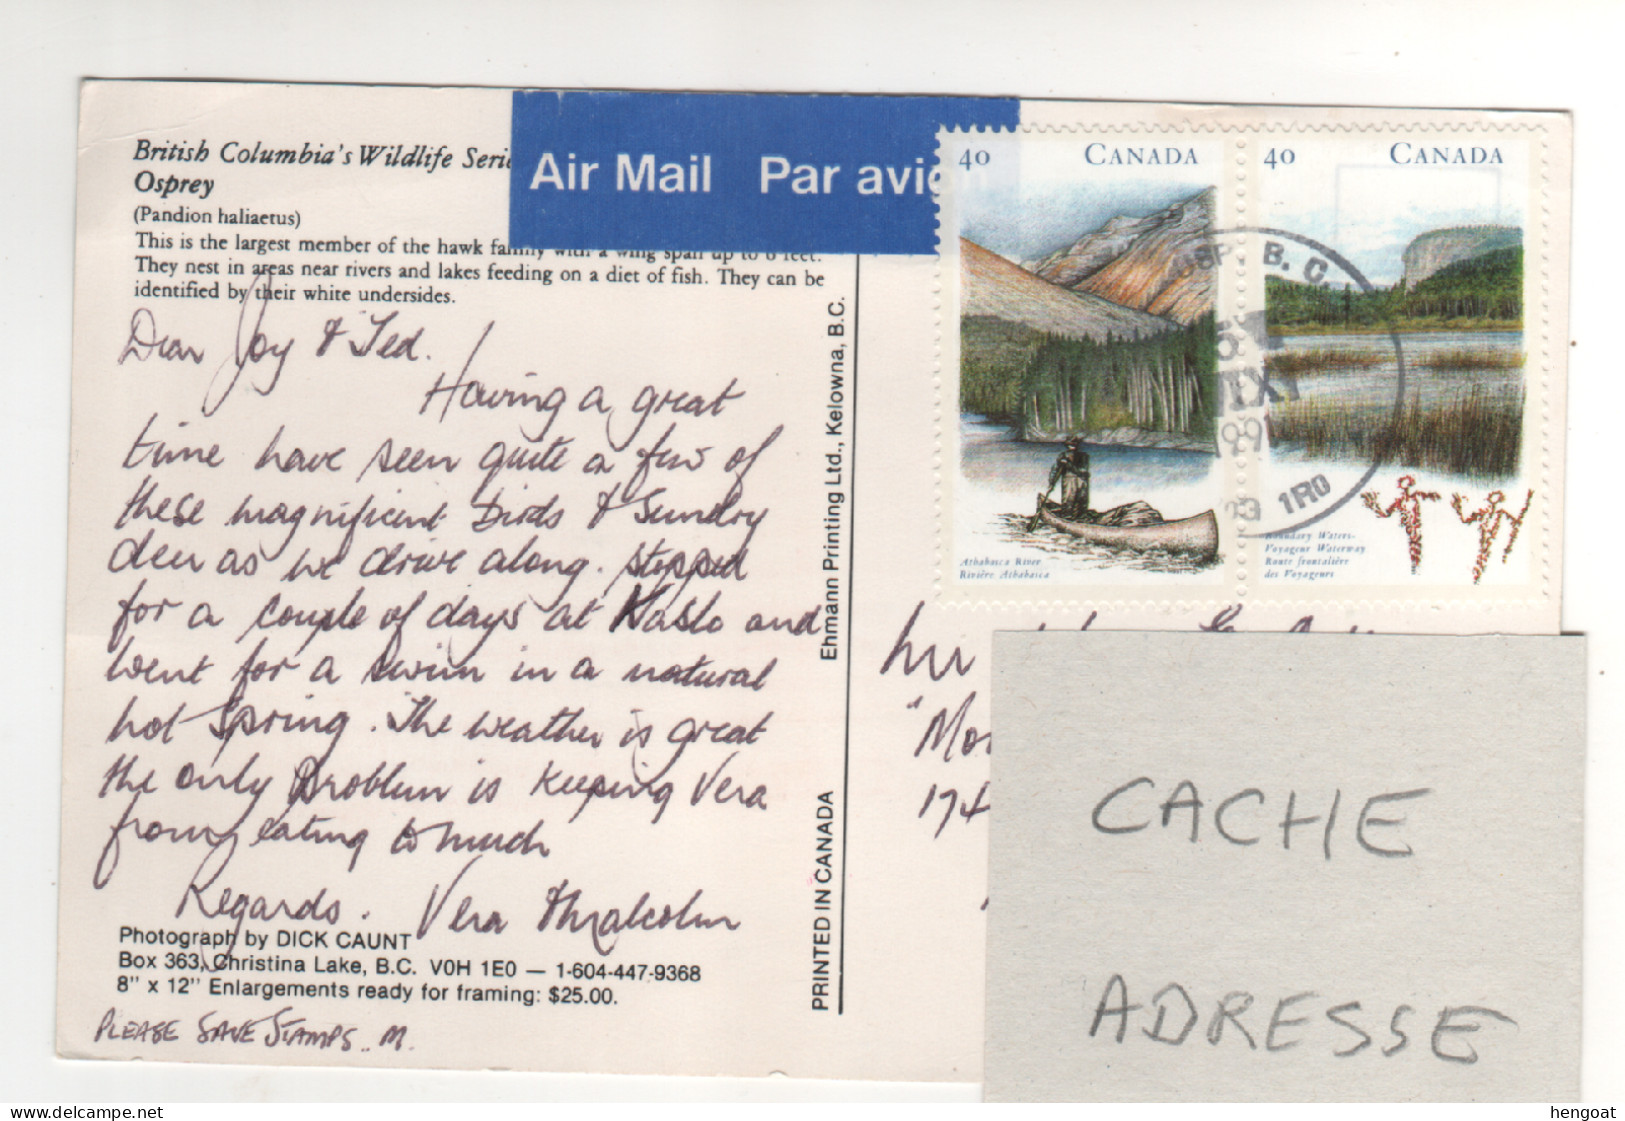 British Columbia's Wildlife
Osprey
(Pandion haliaetus)
This is the largest member of the hawk family with a wing span up to 6 feet.
They nest in areas near rivers and lakes feeding on a diet of fish. They can be
identified by their white undersides.
Dear Joy & Ted.
Having a great
time have seen quite a few of
these magnificent birds & Sundry
deer as we drive along. stopped
for a couple of days at Kaslo and
went for a swim in a natural
hot Spring. The weather is great
the only problem is keeping Vera
from eating to much
Regards. Vera & Malcolm
Photograph by DICK CAUNT
Box 363, Christina Lake, B.C. V0H 1E0 — 1-604-447-9368
8" x 12" Enlargements ready for framing: $25.00.
PLEASE SAVE STAMPS.. M.
Ehmann Printing Ltd., Kelowna, B.C.
PRINTED IN CANADA
Air Mail Par avion
40 CANADA
Athabasca River
Rivière Athabasca
40 CANADA
Boundary Waters-
Voyageur Waterway
Route frontalière
des Voyageurs
B.C.
1R0
174
CACHE
ADRESSE
hengoat